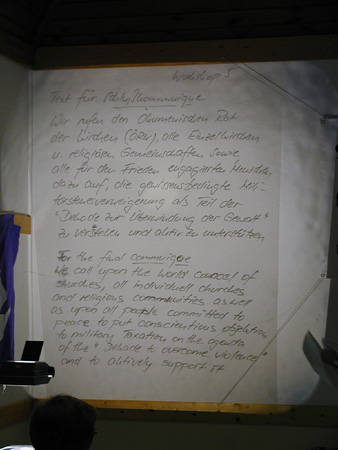 Workshop 5
Text für Schlußkommunique
Wir rufen den Ökumenischen Rat
der Kirchen (ÖRK), alle Einzelkirchen
u. religiösen Gemeinschaften sowie
alle für den Frieden engagierten Menschen
dazu auf, die gewissensbedingte Mili-
tärsteuerverweigerung als Teil der
"Dekade zur Überwindung der Gewalt"
zu verstehen und aktiv zu unterstützen
For the final communique
We call upon the World Council of
churches, all individuell churches
and religious communities as well
as upon all people committed to
peace to put conscientious objektion
to military Taxation on the agenda
of the "Dekade to overcome violence"
and to aktively support it